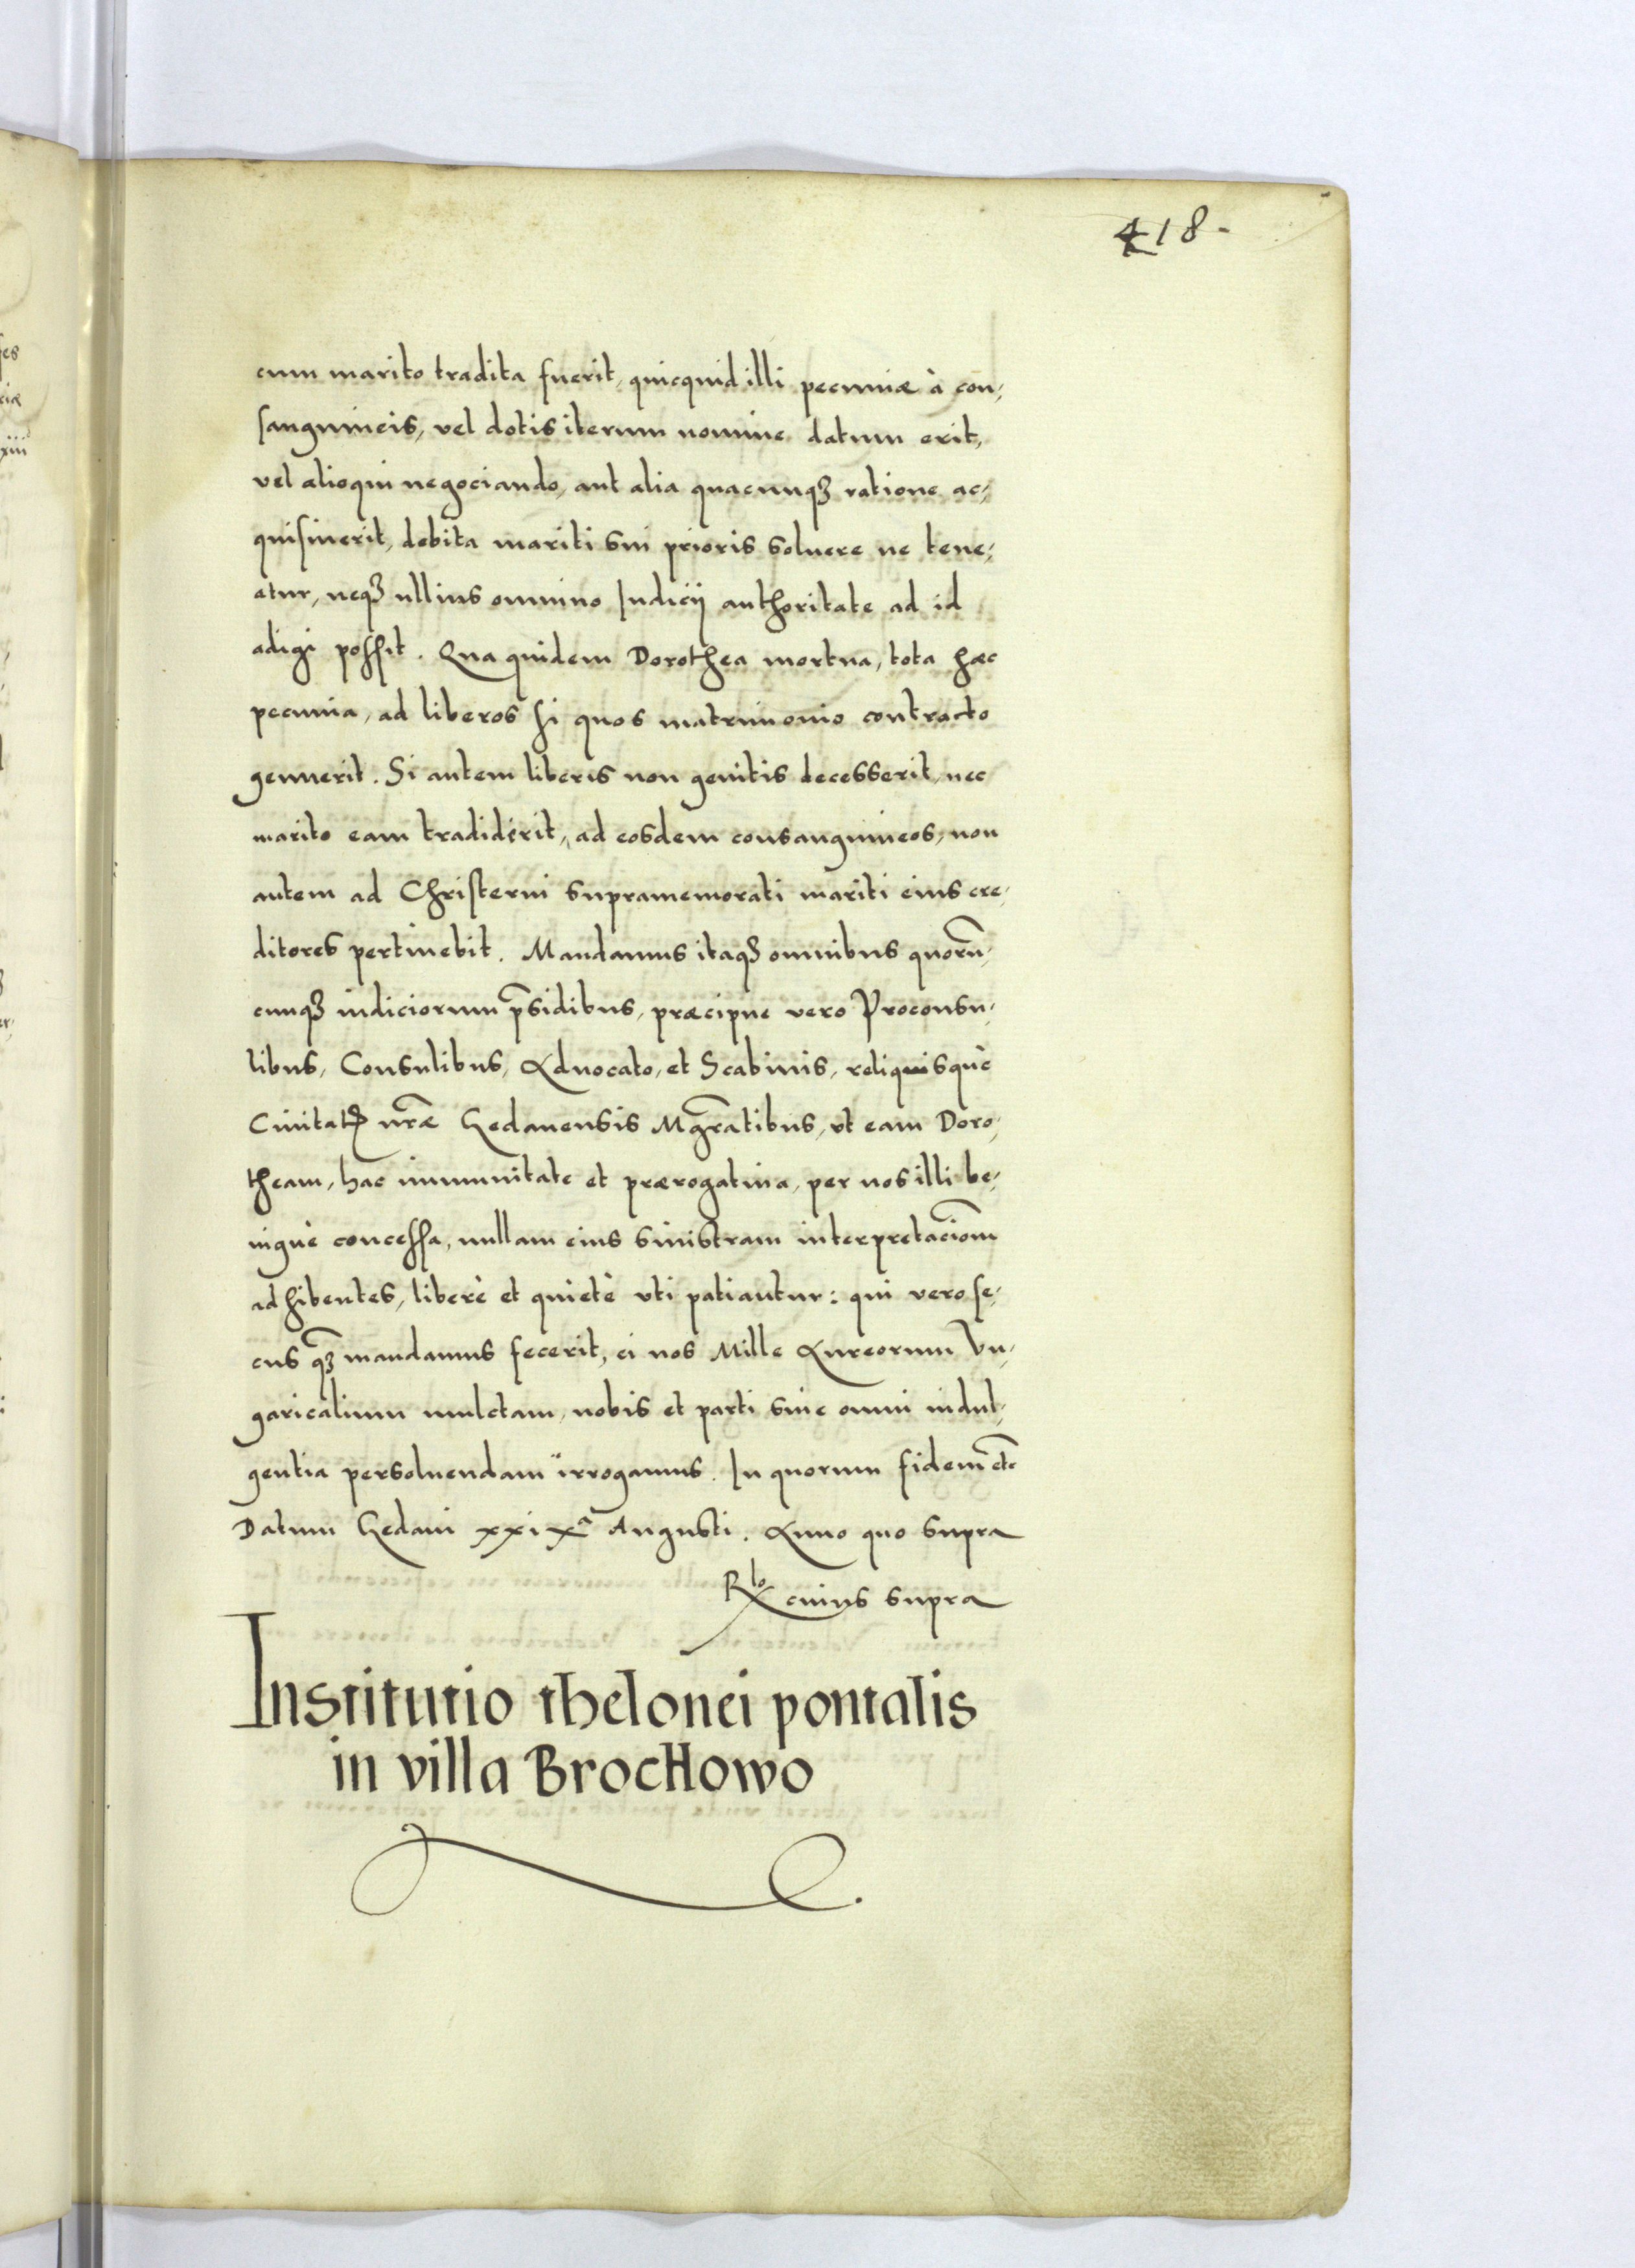 418-
cum marito tradita fuerit, quicquid illi pecuniæ à con,
sanguineis, vel dotis iterum nomine datum erit,
vel alioqui negociando, aut alia quacunqȝ ratione ac,
quisiuerit, debita mariti sui prioris soluere ne tene,
atur, neqȝ ullius omnino Iudicij authoritate ad id
adigi possit. Qua quidem Dorothea mortua, tota hæc
pecunia, ad liberos si quos matrimonio contracto
genuerit. Si autem liberis non genitis decesserit, nec
marito eam tradiderit, ad eosdem consanguineos, non
autem ad Christerni supramemorati mariti eius cre,
ditores pertinebit. Mandamus itaqȝ omnibus quorū,
cunqȝ iudiciorum p̄sidibus, præcipue vero Proconsu,
libus, Consulibus, Aduocato, et Scabinis, reliquisquè
Ciuitatꝭ nr̄æ Gedanensis Mgr̄atibus, vt eam Doro,
theam, hac immunitate et prærogatiua, per nos illi be,
nignè concessa, nullam eius sinistram interpretac̄iom
adhibentes, liberè et quietè vti patiantur: qui vero se,
cus qȝ̄ mandamus fecerit, ei nos Mille Aureorum Vn,
garicalium mulctam, nobis et parti sine omni indul,
gentia persoluendam irrogamus. In quorum fidem etc̄
Datum Gedani xxixa Augusti. Anno quo supra
Rlo cuius supra
Institutio thelonei pontalis
in villa Brochowo